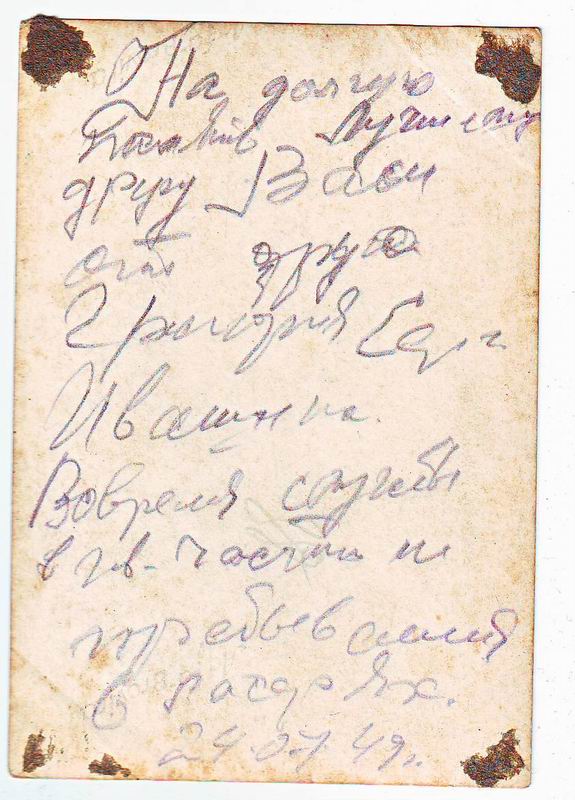 На долгую
Память Лучшему
другу Васи
от друга
Григория
Ивашина.
Вовремя службы
в гв. части и
пребывания
в лагерях.
24.07.49г.